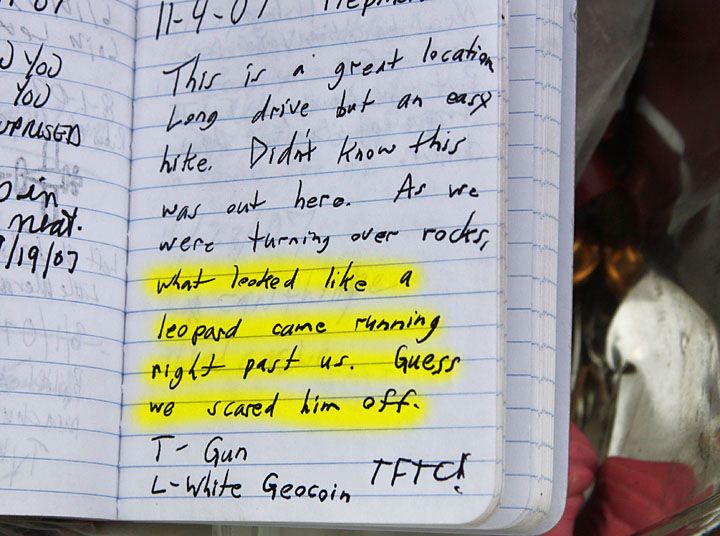 YOU
YOU
in
neat.
/19/07
11-4-07
This is a great location
Long drive but an easy
hike. Didn't know this
was out here. As we
were turning over rocks,
what looked like a
leopard came running
right past us. Guess
we scared him off.
T- Gun
L-White Geocoin TFTC!